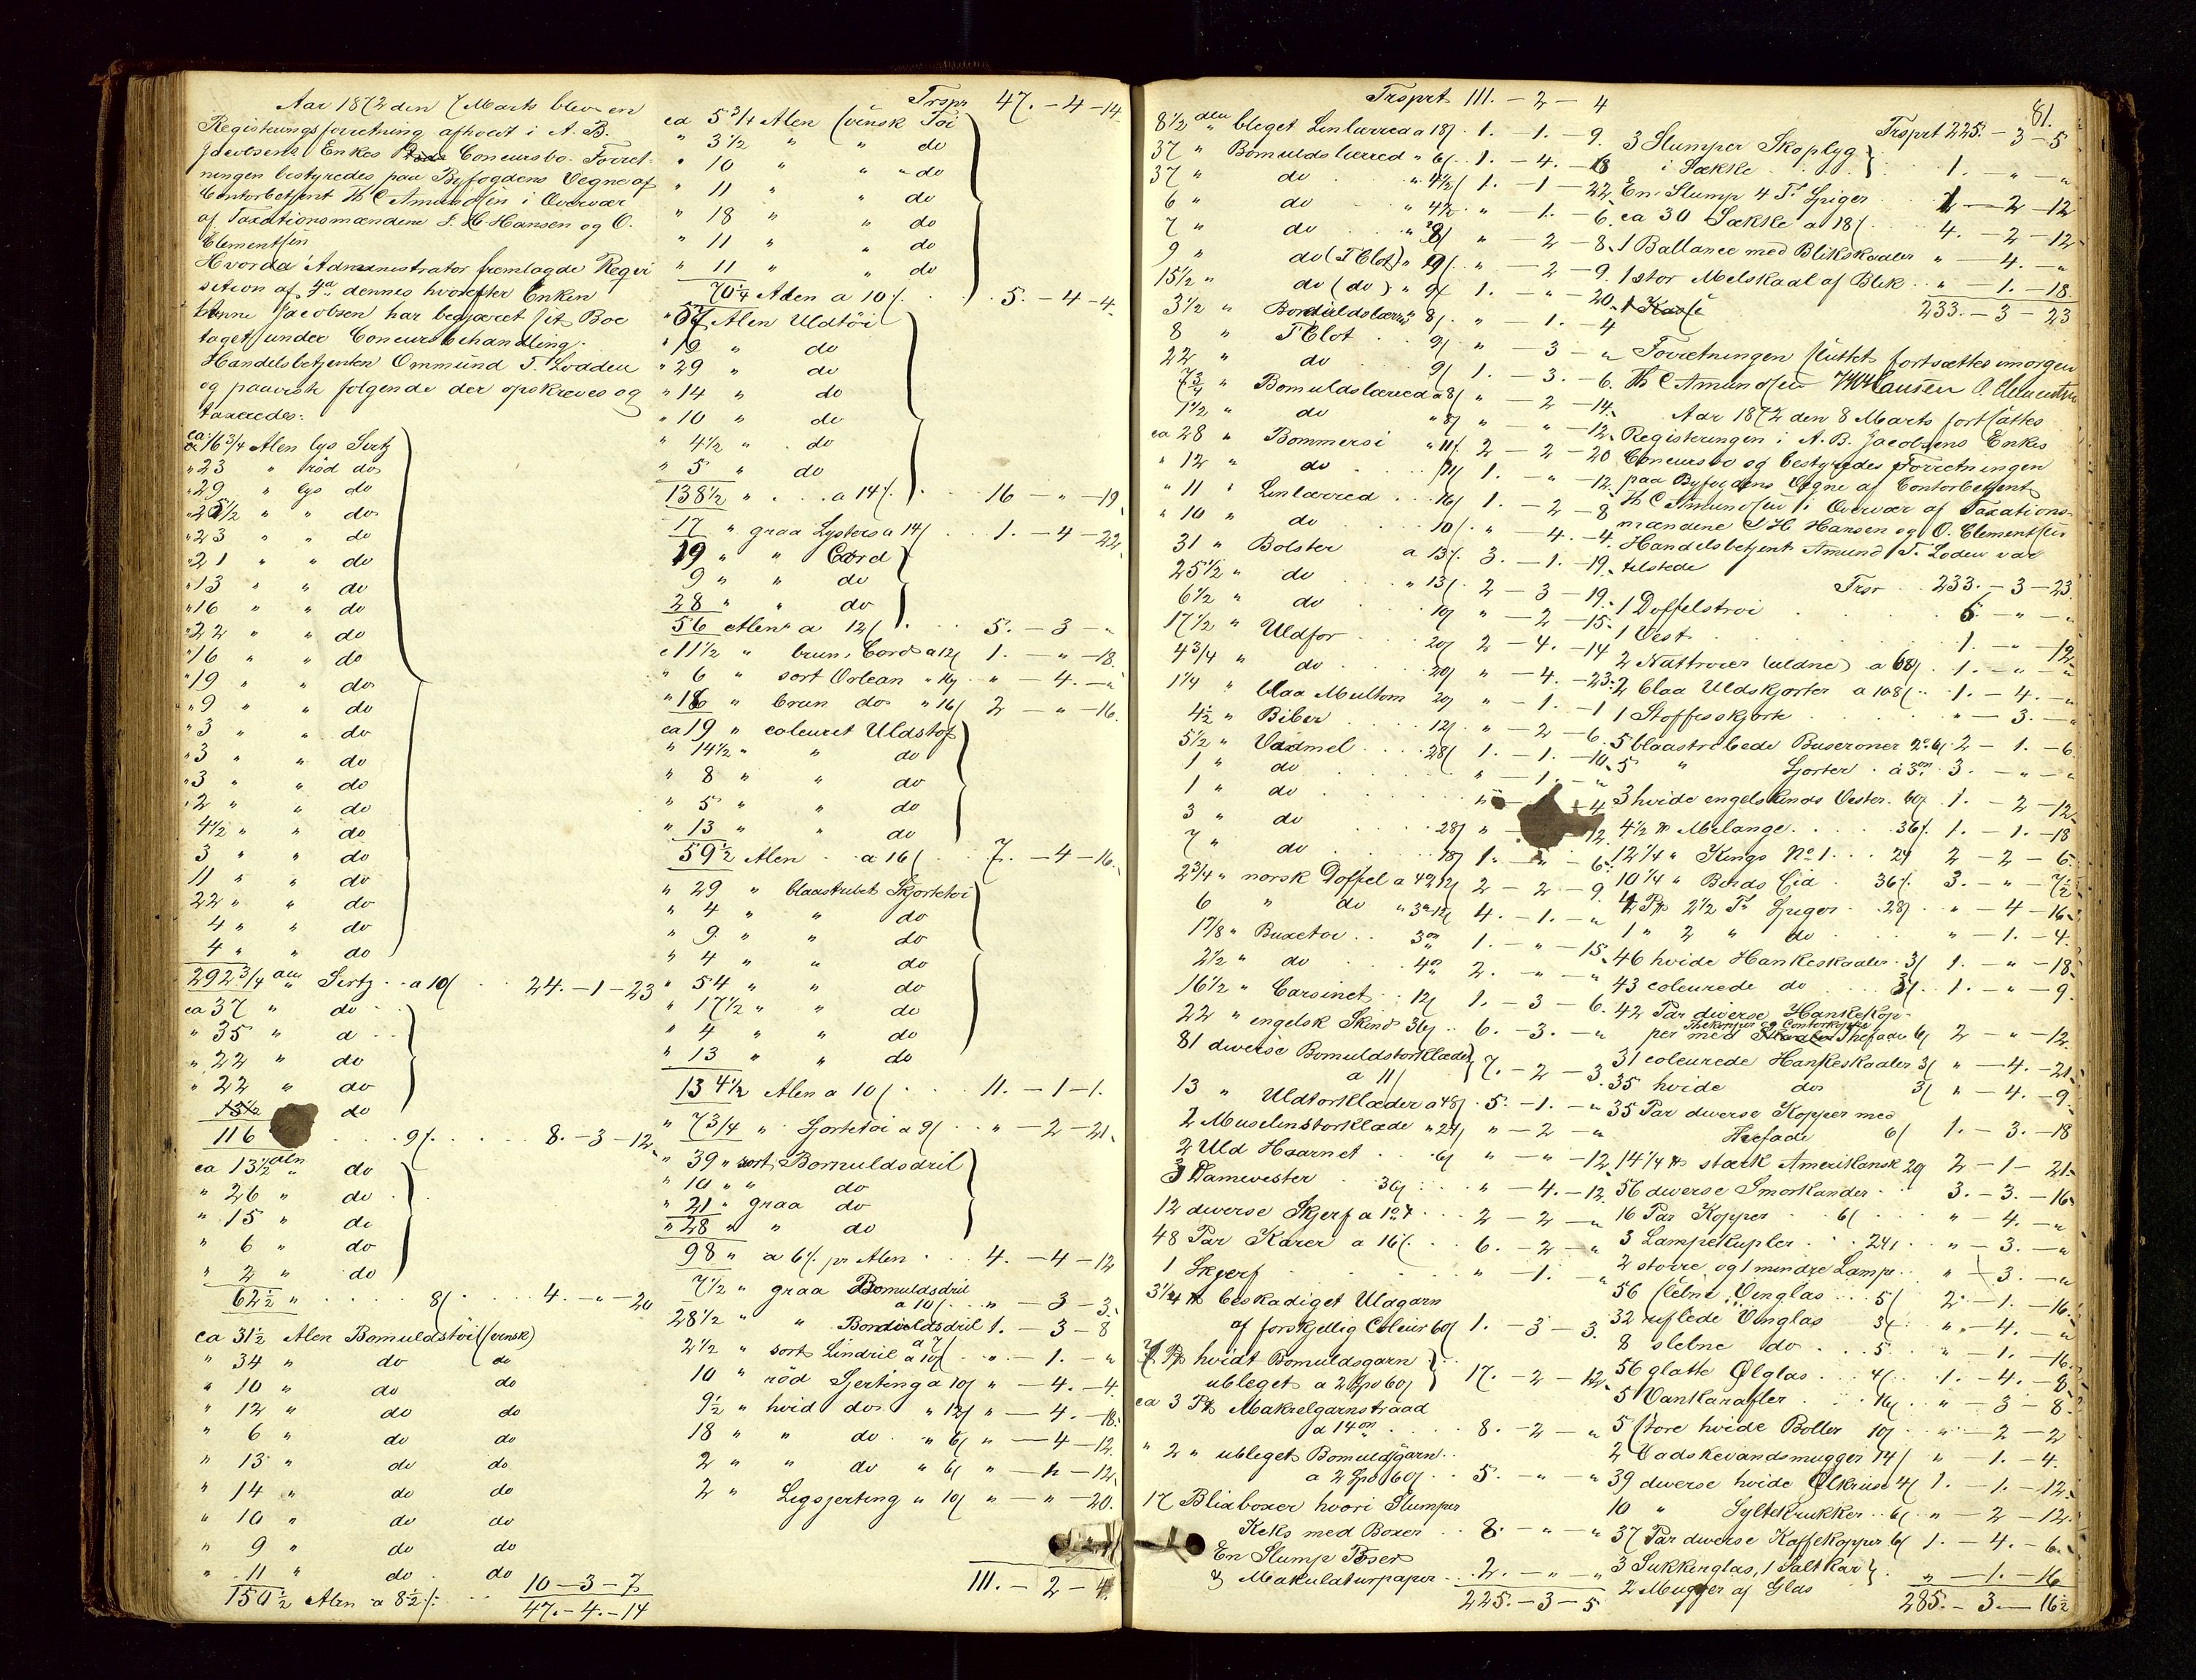 Aar 1872 den 7 Marts blev en
Registeringsforretning afholdt i A. B.
Jacobsens Enkes Concursbo. Forret-
ningen bestyredes paa Byfogdens Vegne af
Contorbetjent Th C Amundsen i Overvær
af Taxationsmændene S. H. Hansen og O.
Clementsen
Hvorda Administrator fremlagde Reqvi
sition af 4de dennes hvorefter Enken
Hanne Jacobsen har begjæret sit Boe
taget under Concursbehandling.
Handelsbetjenten Ommund T. Lodden
og paaviste folgende der opskreves og
taxeredes:
ca 16 3/4 Alen lys Sirtz
" 23 " röd do
" 29 " lys do
" 25 1/2 " " do
" 23 " " do
" 21 " " do
" 13 " " do
" 16 " " do
" 22 " " do
" 16 " " do
" 19 " " do
" 9 " " do
" 3 " " do
" 3 " " do
" 3 " " do
" 2 " " do
4 1/2 " " do
3 " " do
11 " " do
22 " " do
4 " " do
4 " " do
292 3/4 alen Sirtz a 10/ 24. - 1 - 23
ca 37 " do
" 35 " d
" 22 " do
" 22 " do
do
116 9/. 8. - 3 - 12
ca 13 1/2 alen do
" 26 " do
" 15 " do
" 6 " do
" 2 " do
62 1/2 " 8/ 4. - " - 20
ca 31 1/2 Alen Bomuldstöi (svensk)
" 34 " do do
" 10 " do do
" 12 " do do
" 6 " do do
" 13 " do do
" 14 " do do
" 10 " do do
" 9 " do do
" 11 " do do
150 1/2 Alen a 8 1/2/. 10 - 3 - 7
47. - 4. - 14
Trspr 47. - 4 - 14
ca 5 3/4 Alen svensk Töi
" 3 1/2 " " do
" 10 " " do
" 11 " " do
" 18 " " do
" 11 " " do
" 11 " " do
70 1/4 Alen a 10/. 5. - 4 - 4
" 57 Alen Uldtöi
" 19 " do
" 29 " do
" 14 " do
" 10 " do
" 4 1/2 " do
" 5 " do
138 1/2 " a 14/. 16 - " - 19
17 " graa Lysters a 14/ 1. - 4 - 22
19 " " Cord
9 " " do
28 " " do
56 Alen a 12/ 5. - 3 - "
" 11 1/2 " brun Cord a 12/ 1. - " - 18
" 6 " sort Orlean " 16/ " - 4. - "
" 18 " brun do " 16/ 2 - " - 16
ca 19 " coleuret Uldstof
" 14 1/2 " " do
" 8 " " do
" 5 " " do
" 13 " " do
59 1/2 Alen a 16/ 7. - 4 - 16
" 29 " blaastribet Skjortetöi
" 4 " " do
" 9 " " do
" 4 " " do
" 54 " " do
" 17 1/2 " " do
" 4 " " do
" 13 " " do
134 1/2 Alen a 10/ 11. - 1 - 1.
" 7 3/4 " Sjortetöi a 9/ " - 2 - 21
" 39 " sort Bomuldsdril
" 10 " " do
" 21 " graa do
" 28 " " do
98 " a 6/. pr Alen 4. - 4 - 12
7 1/2 " graa Bomuldsdril
a 10/. " - 3 - 3
28 1/2 " " Bomuldsdril 1. - 3 - 8
a 7/
2 1/2 " sort Lindril a 10/ " - 1. - "
10 " röd Sjerting a 10/ " - 4. - 4
9 1/2 " hvid do " 12/ " - 4. - 18
18 " " do " 6/ " - 4 - 12
2 " " do " 6/ " - " - 12
2 " Ligsjerting " 10/ " - " - 20.
111. - 2 - 4
Trsprt 111. - 2 - 4
8 1/2 alen bleget Linlærred a 18/. 1. - 1. - 9.
37 " Bomuldslærred " 6/. 1. - 4. - 18
37 " do " 4 1/2/ 1. - 1 - 22
6 " do " 4 1/2 " - 1. - 6.
7 " do " 8/ " - 2 - 8.
9 " do (T Clot) " 9/. " - 2 - 9.
15 1/2 " do (do) " 9/ 1. - " - 20.
3 1/2 " Bomuldslærred " 8/. " - 1. - 4
8 " T Clot 9/ " - 3 - "
22 " do 9/ 1. - 3. - 6.
7 3/4 " Bomuldslærred a 8/ " - 2 - 14.
1 1/2 " do " 8/ " - " - 12.
ca 28 " Bommersi " 11/. 2 - 2 - 20
" 12 " do 11/ 1. - " - 12.
" 11 " Linlærred 16/ 1. - 2 - 8
" 10 " do 10/. " - 4. - 4.
31 " Bolster a 13/. 3. - 1. - 19.
25 1/2 " do " 13/. 2 - 3 - 19.
6 1/2 " do 10/ " - 2 - 15.
17 1/2 " Uldfor 20/ 2 - 4. - 14
4 3/4 " do 20/ " - 4. - 23.
1 1/4 " blaa Multom 20/ " - 1. - 1
4 1/2 " Biber 12/. " - 2 - 6.
5 1/2 " Vadmel 28/ 1. - 1. - 10.
1 " do " - 1. - "
1 " do 4
3 " do 28/ " 12.
7 " do 18/ 1. - " - 6.
2 3/4 " norsk Doffel a 4 12/ 2 - 2 - 9
6 " do " 3 12/ 4. - 1. - "
1 7/8 " Buxetöi 3 1. - " - 15.
2 1/2 " do 4 2. - " - "
16 1/2 " Carsinet 12/ 1. - 3 - 6.
22 " engelsk Skind 36/ 6. - 3. - "
81 diverse Bomuldstörklæder
a 11/ 7. - 2 - 3.
13 " Uldtorklæder a 48/. 5. - 1. - "
2 Muselinstorklæde " 24/ " - 2 - "
2 Uld Haarnet 6/ " - " - 12
3 Damevester 36/ " - 4. - 12.
12 diverse Skjerf a 2 - 2 - "
48 Par Karer a 16/. 6. - 2 - "
1 Skjerf " - 1. - "
3 1/4 ℔ beskadiget Uldgarn
af forskjellig Coleur 60/ 1. - 3 - 3.
hvidt Bomuldsgarn
ubleget a 2 Spd 60/ 17. - 2 - 12
ca 3 Makrelgarnstraad
a 14 8. - 2 - "
" 2 " ubleget Bomuldsgarn
a 2 Spd 60/ 5. - " - "
17 Blixboxer hvori Slumper
Keks med Boxer 8. - " - "
En Slump Poser
& Makulaturpapir 2. - " - "
225. - 3 - 5
81.
Trsprt 225. - 3 - 5
3 Slumper Skoplyg
i Sække 1. - " - "
En Slump 4 T. Spiger 1 - 2 - 12
ca 30 Sække a 18/ 4. - 2 - 12
1 Ballance med Blikskaaler " - 4. - "
1 stor Melskaal af Blik " - 1. - 18.
233. - 3 - 23
Forretningen sluttet fortsættes imorgen
Th C Amundsen S H Hansen O. Clementsen
Aar 1872 den 8 Marts fortsattes
Registeringen i A. B. Jacobsens Enkes
Concursbo og bestyredes Forretningen
paa Byfogdens Vegne af Contorbetjent
Th C Amundsen i Overvær af Taxations-
mændene S H. Hansen og O. Clementsen
Handelsbetjent Amund T. Loden var
tilstede
Trsr 233. - 3 - 23.
1 Doffelströi 5. - " - "
1 Vest 1. - " - 12
2 Nattroier (uldne) a 68/. 1. - " - "
2 blaa Uldskjorter a 108/. 1. - 4. - "
1 Stoffesskjorte " - 3. - "
5 blaastribede Buseroner 2 6/ 2 - 1. - 6
5 " Sjorter a 3 3. - " - "
3 hvide engelskinds Vester 60/ 1. - 2 - 12
4 1/2 ℔ Melange 36/. 1. - 1. - 18
12 1/4 " Kings No 1. 24 2 - 2 - 6
10 1/4 " Berds Cid 36/. 3. - " - 7 1/2
2 1/2 T. Spiger 28/ " - 4 - 16
1 " 2 " do " - 1. - 4.
46 hvide Hankeskaaler 3/ 1. - " - 18.
43 coleurede do 3/. 1. - " - 9.
42 Par diverse Hankekop-
per med Thefade 6/ 2 - " - 12.
31 coleurede Hankeskaaler 3/ " - 4. - 21
35 hvide do 3/ " - 4. - 9
35 Par diverse Kopper med
Thefade 6/ 1. - 3. - 18
14 1/4 ℔ stærk Amerikansk 29 2 - 1 - 21.
56 diverse Smorkander 3. - 3. - 16
16 Par Kopper 6/ " - 4. - "
3 Lampekupler 24/ " - 3. - "
2 större og 1 mindre Lamp " - 3. - "
56 slebne Vinglas 5/ 2. - 1. - 16.
32 riflede Vinglas 3/ " - 4. - "
8 slebne do 5 " - 1. - 16.
56 glatte Ølglas 4/ 1. - 4. - 8
5 Vankarafler 16/ " - 3 - 8
5 store hvide Boller 10/ " - 2 - 2
2 Vadskevandsmugger 14/ " - 1. - 4.
39 diverse hvide Ølkruse 4/ 1. - 1. - 12.
10 " Syltekrukker 6/ " - 2 - 12
37 Par diverse Kaffekopper 6/ 1. - 4. - 6
3 Sukkerglas, 1 Saltkar
2 Mugger af Glas " - 1. - 16
285. - 3. - 16 1/2